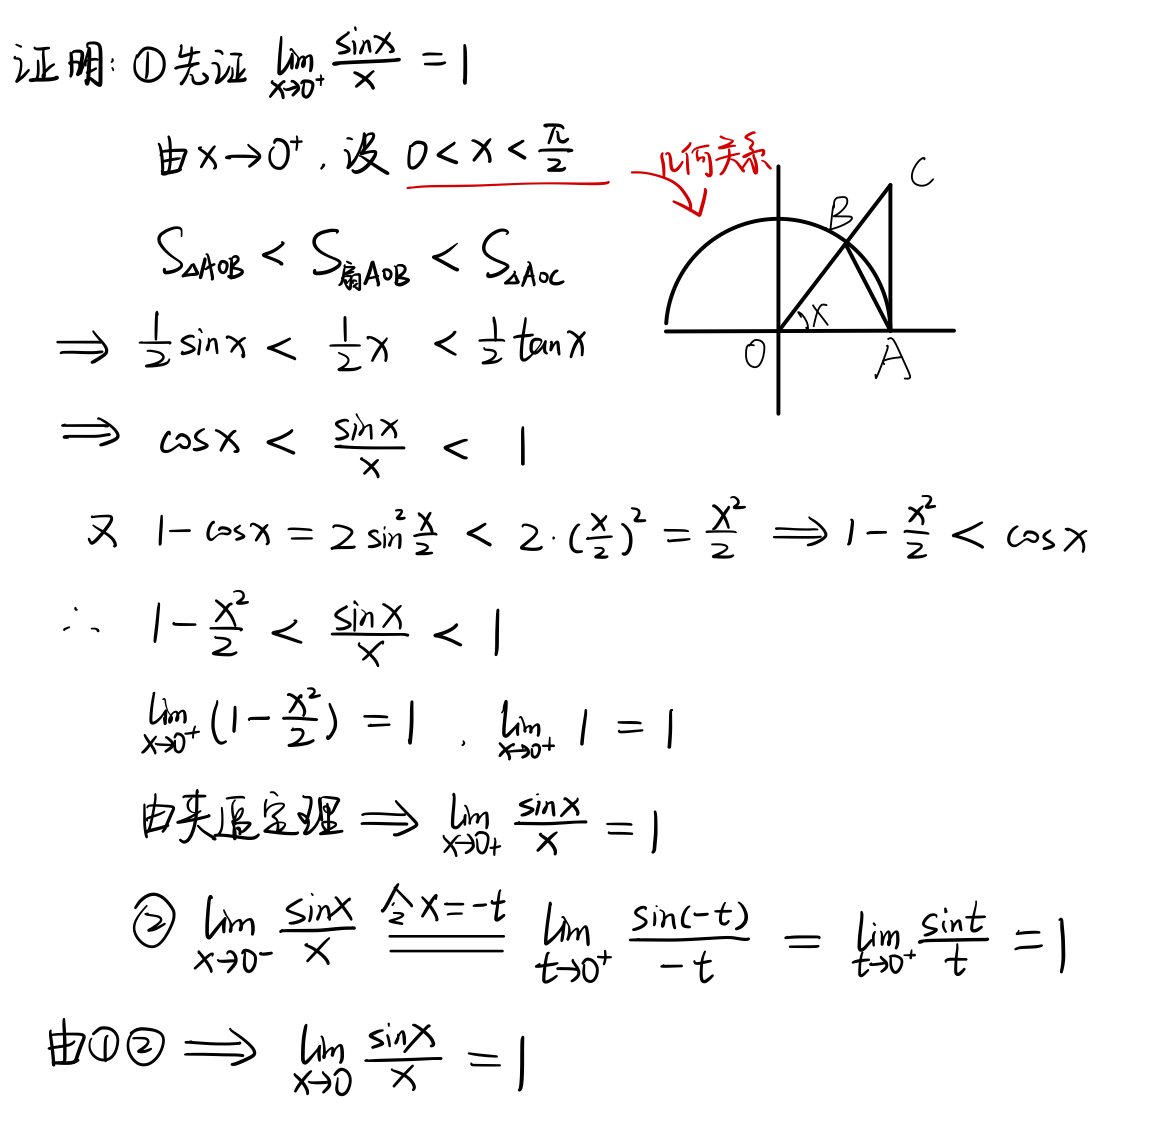 证明: ①先证 lim x→0⁺ sinx/x = 1
由x→0⁺, 设 0 < x < π/2
几何关系
C
B
x
O
A
S△AOB < S扇AOB < S△AOC
⇒ 1/2 sinx < 1/2 x < 1/2 tanx
⇒ cosx < sinx/x < 1
又 1 - cosx = 2 sin² x/2 < 2·(x/2)² = x²/2 ⇒ 1 - x²/2 < cosx
∴ 1 - x²/2 < sinx/x < 1
lim x→0⁺ (1 - x²/2) = 1, lim x→0⁺ 1 = 1
由夹逼定理 ⇒ lim x→0+ sinx/x = 1
② lim x→0⁻ sinx/x 令x=-t ═══ lim t→0⁺ sin(-t)/-t = lim t→0⁺ sint/t = 1
由①② ⇒ lim x→0 sinx/x = 1